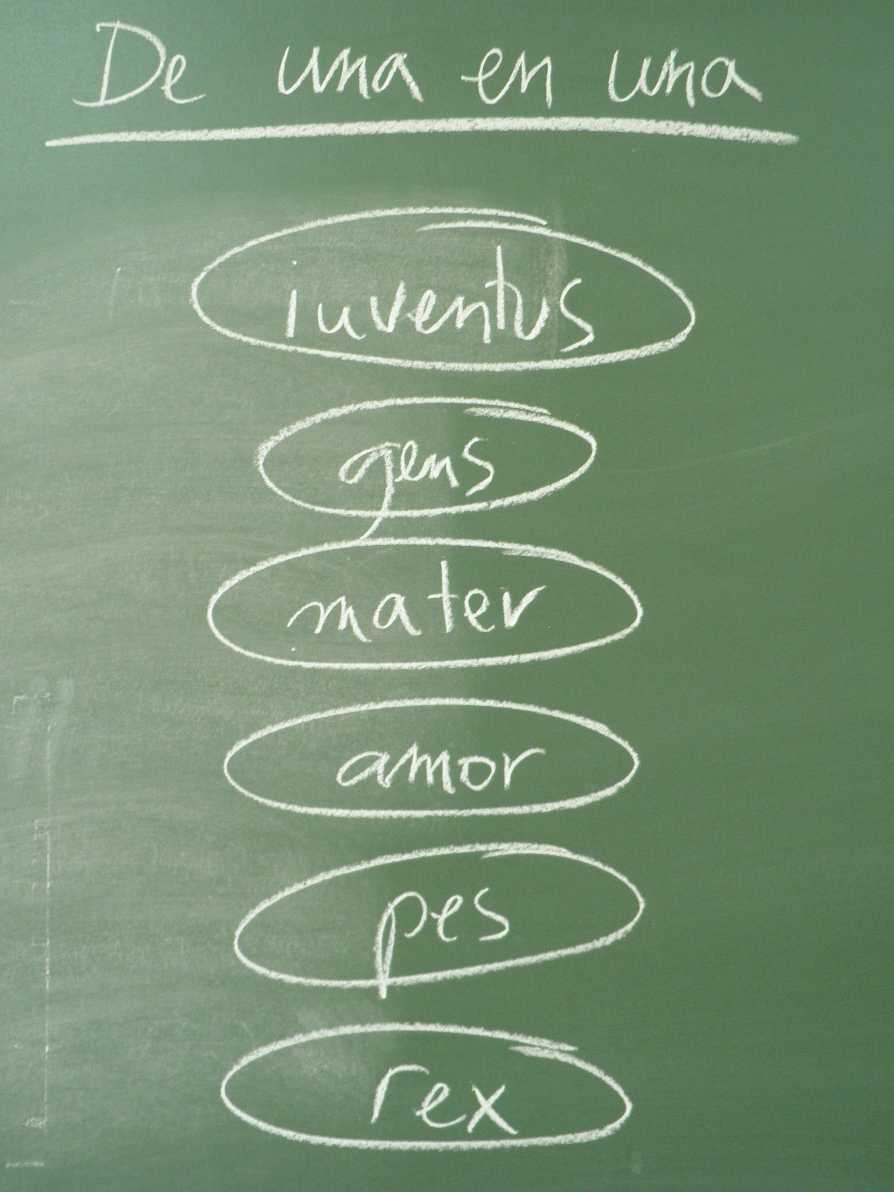 De una en una
iuventus
gens
mater
amor
pes
rex